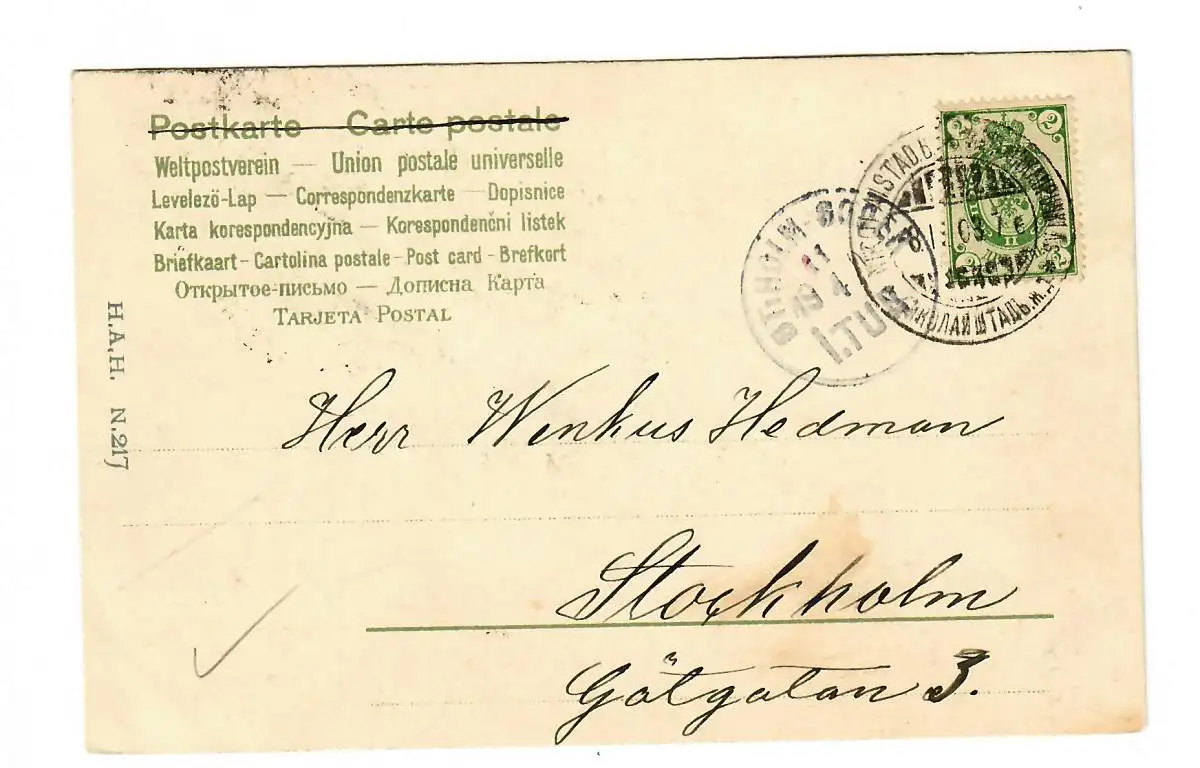 Postkarte Carte postale
Weltpostverein — Union postale universelle
Levelezö-Lap — Correspondenzkarte — Dopisnice
Karta korespondencyjna — Korespondenčni listek
Briefkaart - Cartolina postale - Post card - Brefkort
Открытое-письмо — Дописна Карта
TARJETA POSTAL
H.A.H. N.217
2 2
11
19 4
1.TUR
НИКОЛАЙШТАДЪ.Ж.Д.
Herr Wenkus Hedman
Stockholm
Götgatan 3.